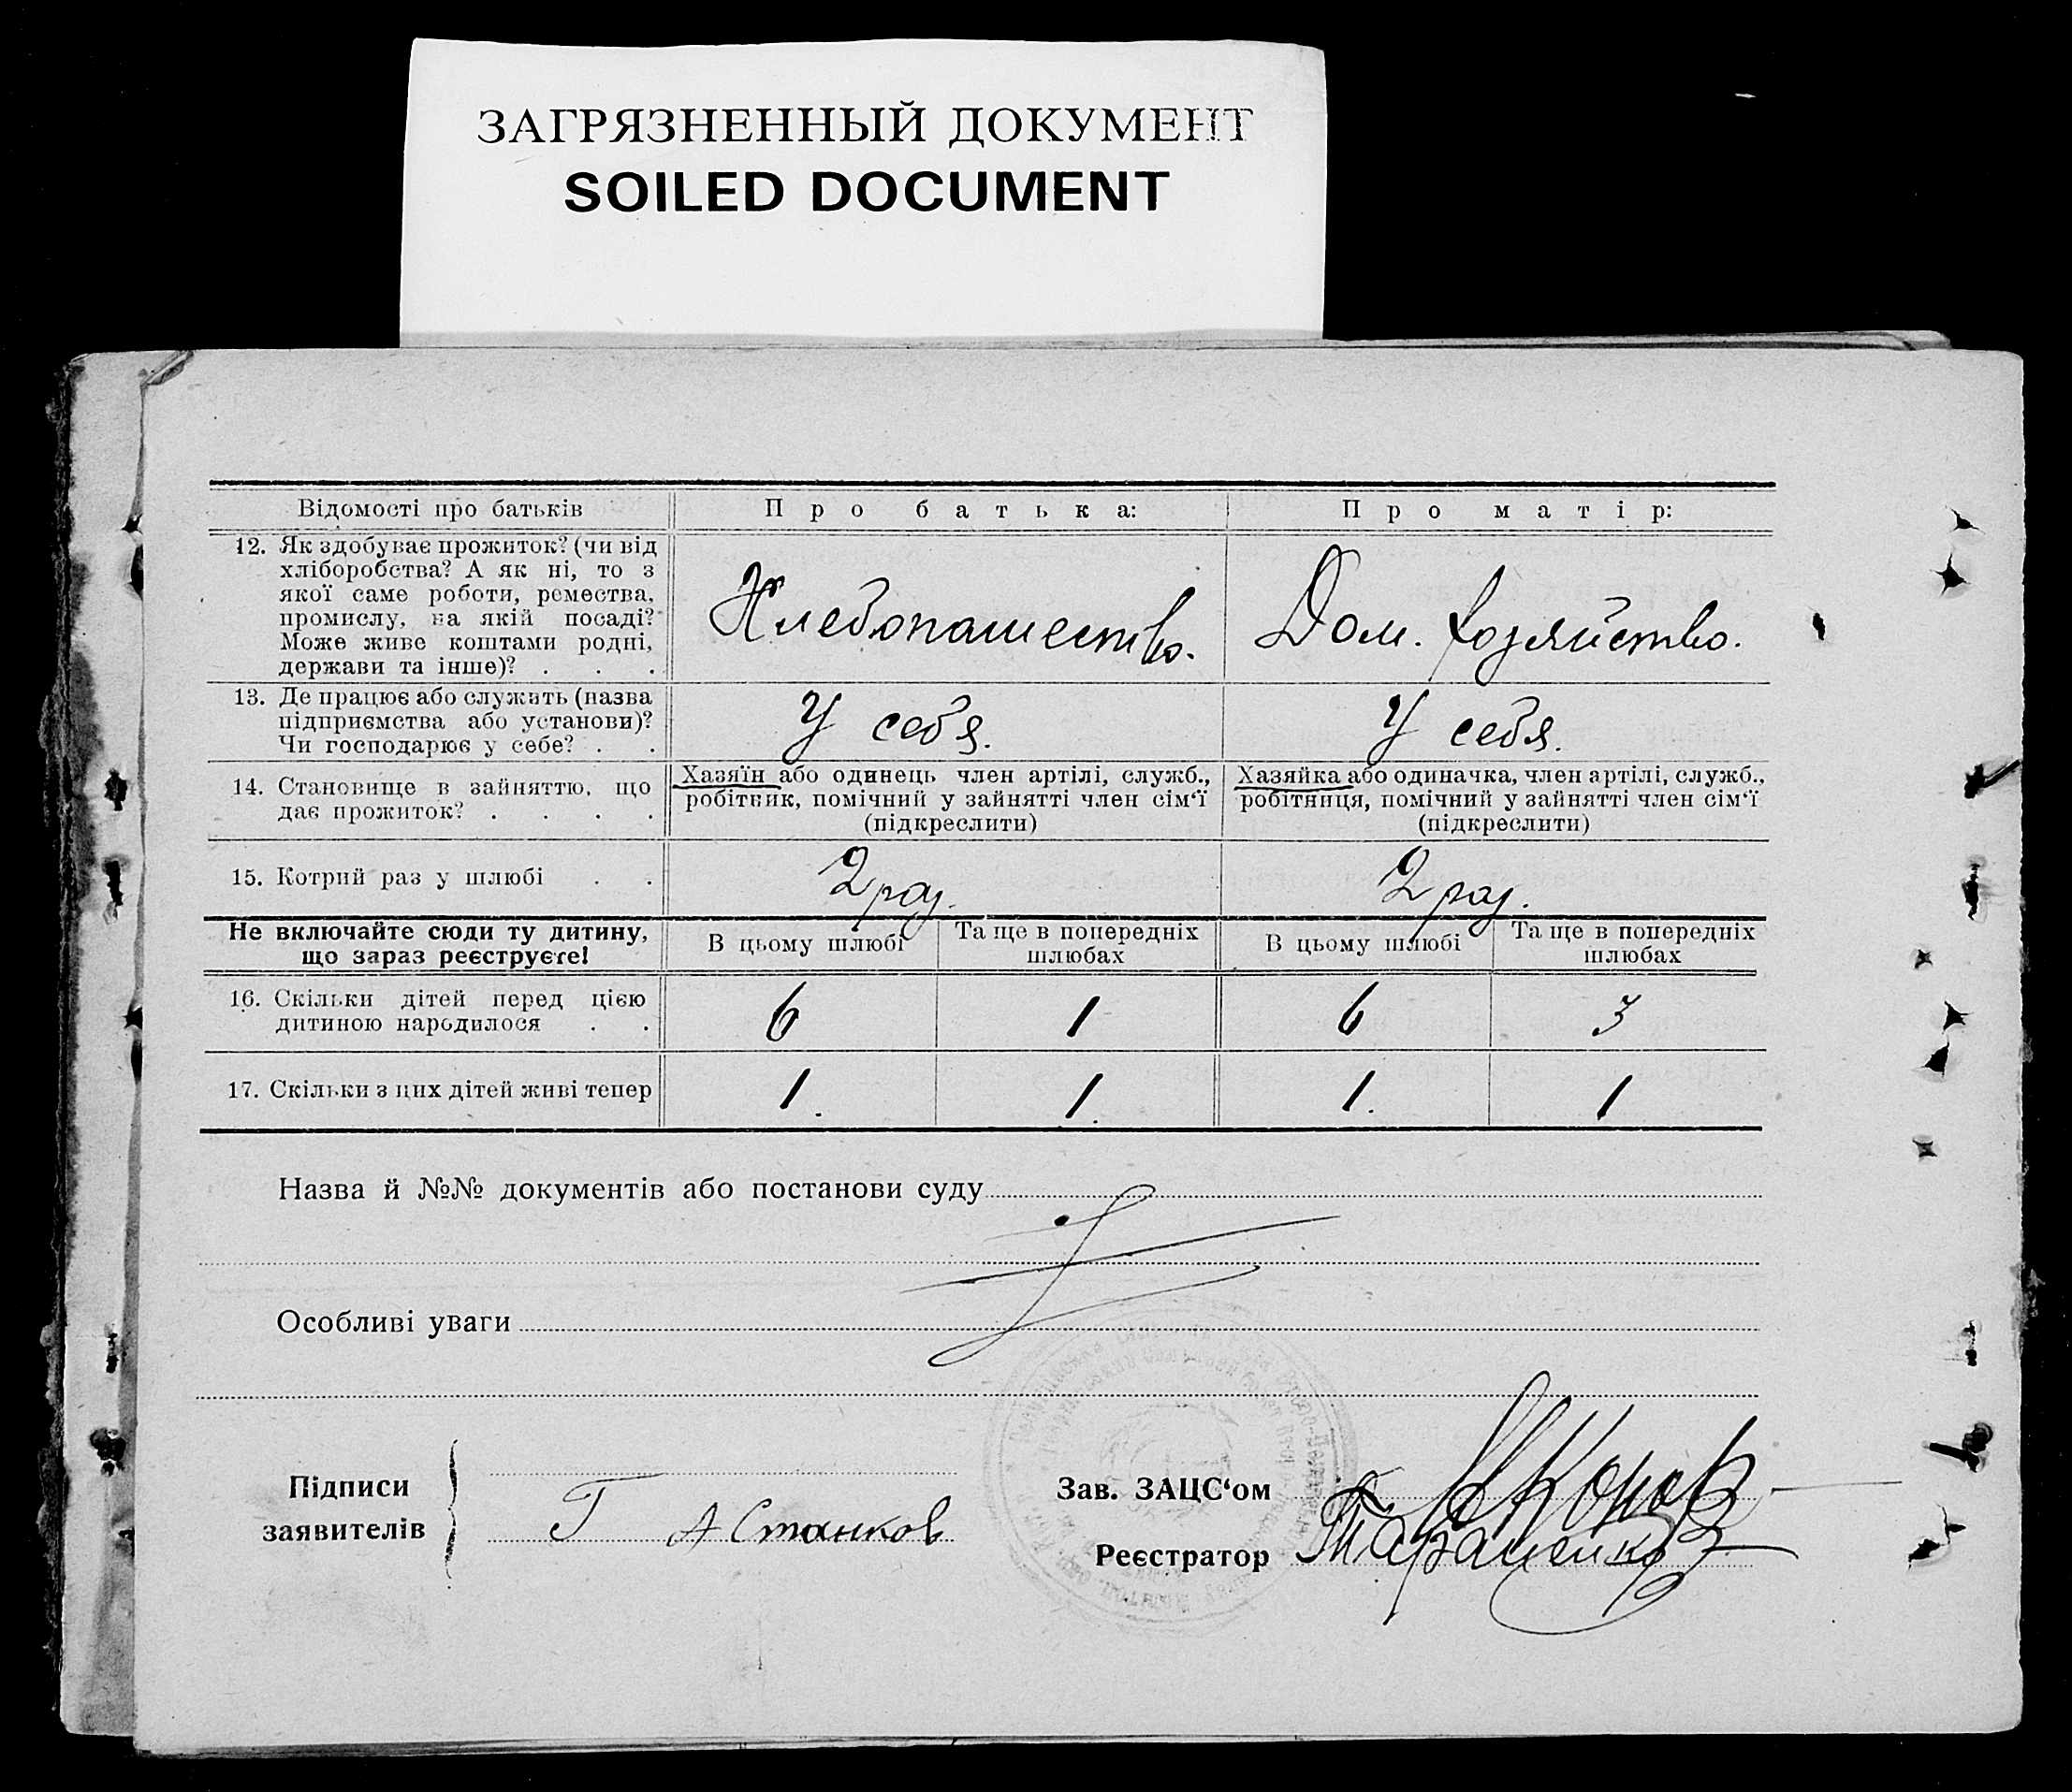 ЗАГРЯЗНЕННЫЙ ДОКУМЕНТ
SOILED DOCUMENT
Відомості про батьків Про батька: Про матір:
12. Як здобуває прожиток? (чи від
хліборобства? А як ні, то з
якої саме роботи, ремества,
промислу, на якій посаді?
Може живе коштами родні,
держави та інше)? . . .
Хлебопашество. Дом. хозяйство.
13. Де працює або служить (назва
підприємства або установи)?
Чи господарює у себе? . .
У себя. У себя.
14. Становище в зайняттю, що
дає прожиток? . . . .
Хазяїн або одинець член артілі, служб.,
робітник, помічний у зайнятті член сім‘ї
(підкреслити)
Хазяйка або одиначка, член артілі, служб.,
робітниця, помічний у зайнятті член сім‘ї
(підкреслити)
15. Котрий раз у шлюбі . . 2 раз. 2 раз.
Не включайте сюди ту дитину,
що зараз реєструєте!
В цьому шлюбі
Та ще в попередніх
шлюбах
В цьому шлюбі
Та ще в попередніх
шлюбах
16. Скільки дітей перед цією
дитиною народилося . .
6 1 6 3
17. Скільки з цих дітей живі тепер 1. 1. 1. 1
Назва й №№ документів або постанови суду
Особливі уваги
Підписи
заявителів
Г А Станков
Зав. ЗАЦС‘ом
Реєстратор Таращенко